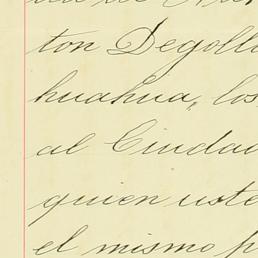 ton Degolla
huahua, los
al Ciudad
quien uste
el mismo p